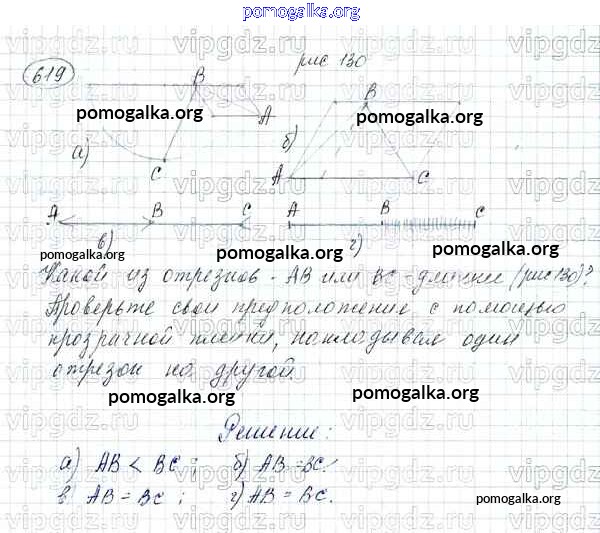 pomogalka.org
619
рис 130
B
B
pomogalka.org
A
pomogalka.org
а)
б)
C
A
C
A
B
C
A
B
C
pomogalka.org
в)
г)
pomogalka.org
Какой из отрезков - AB или BC - длинее (рис 130)?
Проверьте свои предположение с помощью
прозрачной пленки, накладывая один
отрезок на другой.
pomogalka.org
pomogalka.org
Решение:
а) AB < BC ; б) AB = BC;
в) AB = BC ; г) AB = BC.
pomogalka.org
vipgdz.ru